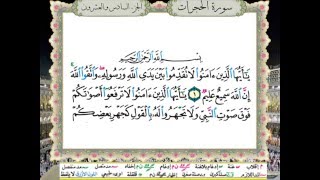 سورة الحجرات
الجزء السادس والعشرون
بسم الله الرحمن الرحيم
يَٰٓأَيُّهَا ٱلَّذِينَ ءَامَنُوا۟ لَا تُقَدِّمُوا۟ بَيْنَ يَدَىِ ٱللَّهِ وَرَسُولِهِۦ ۖ وَٱتَّقُوا۟ ٱللَّهَ ۚ
إِنَّ ٱللَّهَ سَمِيعٌ عَلِيمٌ ۝١ يَٰٓأَيُّهَا ٱلَّذِينَ ءَامَنُوا۟ لَا تَرْفَعُوٓا۟ أَصْوَٰتَكُمْ
فَوْقَ صَوْتِ ٱلنَّبِىِّ وَلَا تَجْهَرُوا۟ لَهُۥ بِٱلْقَوْلِ كَجَهْرِ بَعْضِكُمْ